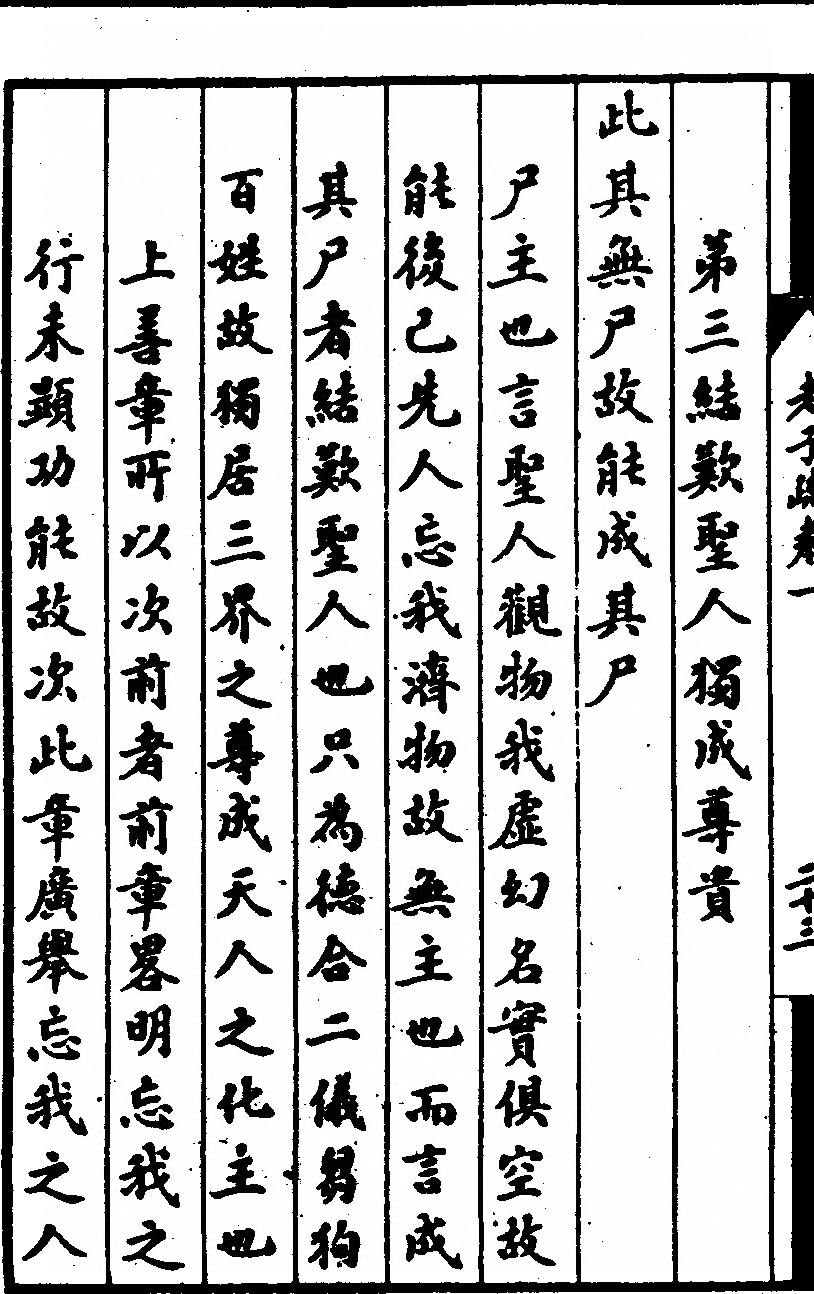 老子疏卷一
二十三
第三結歎聖人獨成尊貴
此其無尸故能成其尸
尸主也言聖人觀物我虛幻名實俱空故
能後己先人忘我濟物故無主也而言成
其尸者結歎聖人也只為德合二儀芻狗
百姓故獨居三界之尊成天人之化主也
上善章所以次前者前章畧明忘我之
行未顯功能故次此章廣舉忘我之人